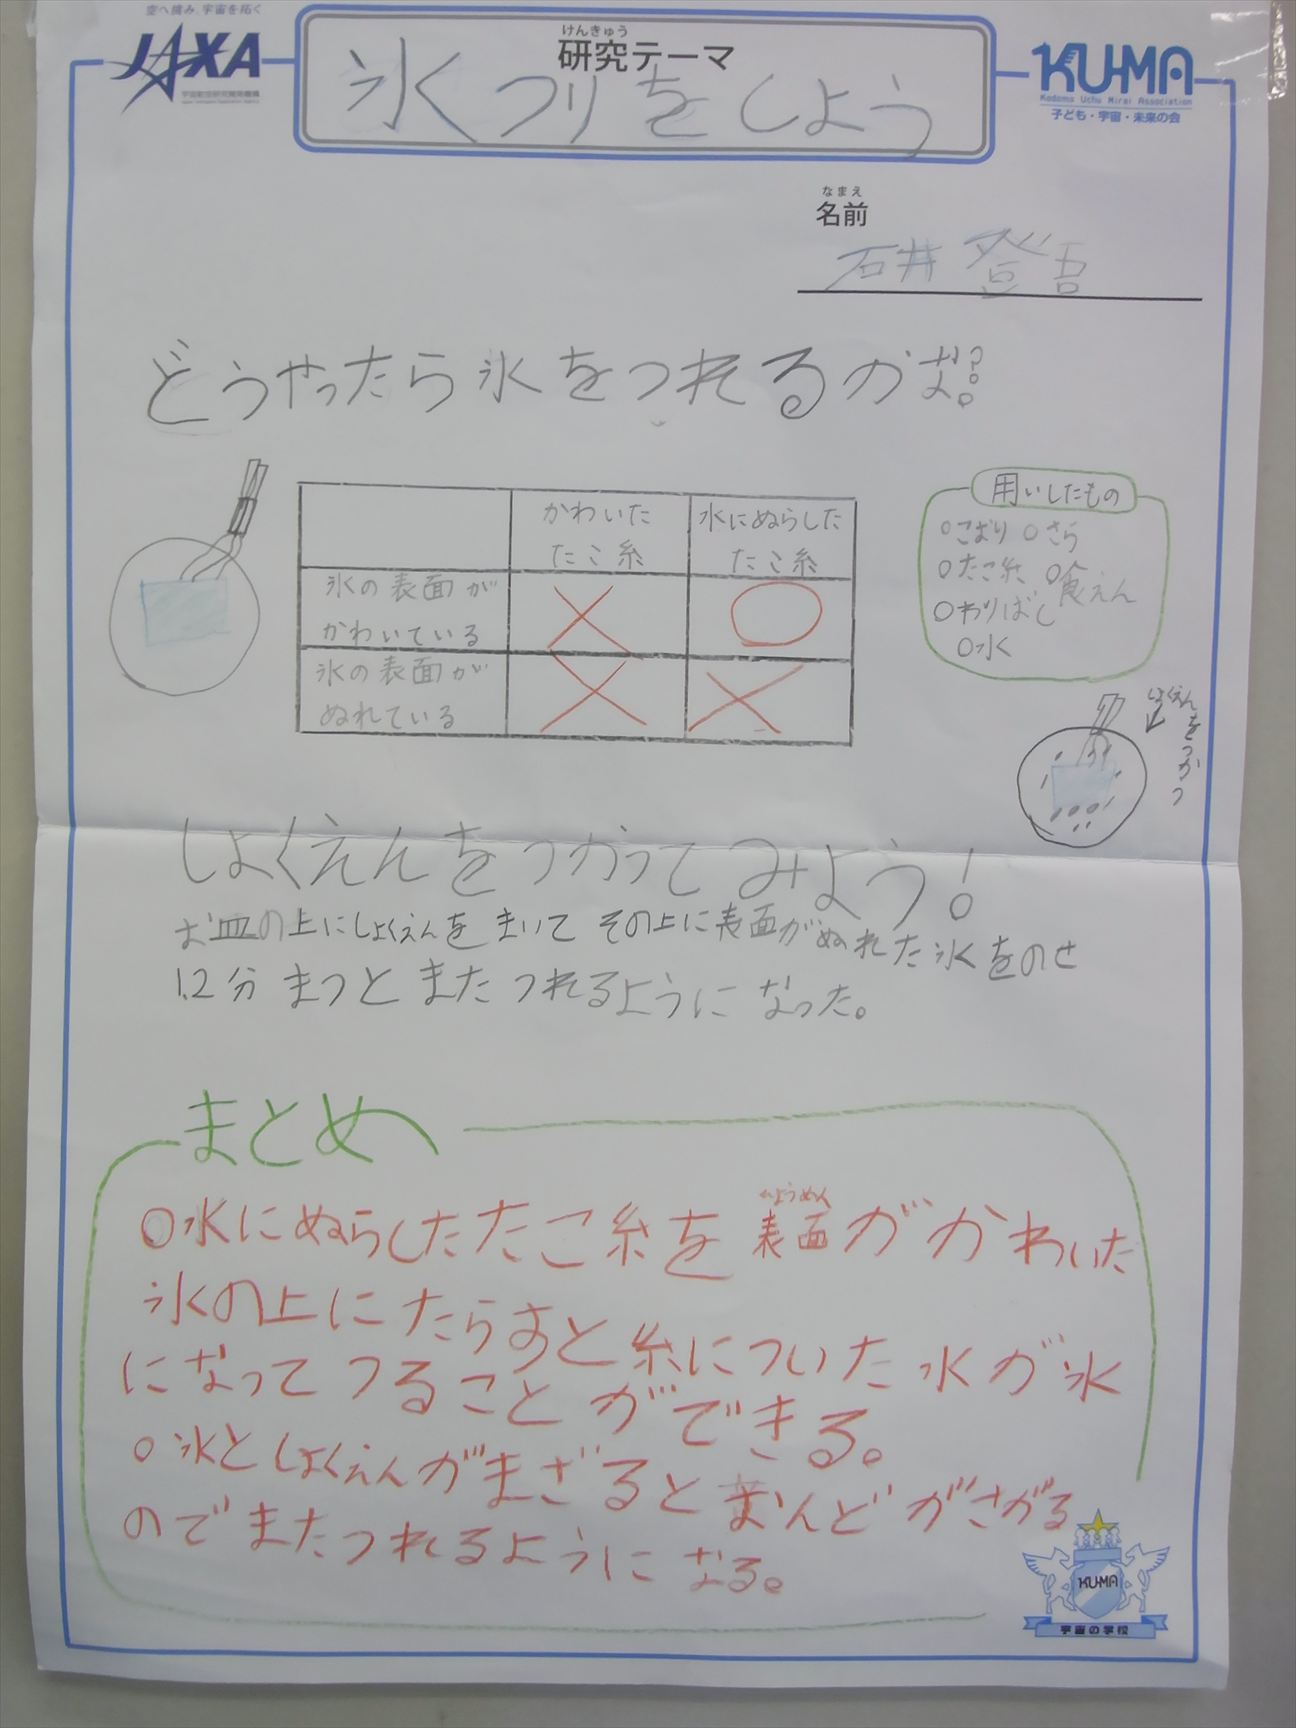 空へ挑み、宇宙を拓く
JAXA
宇宙航空研究開発機構
Japan Aerospace Exploration Agency
けんきゅう
研究テーマ
氷つりをしよう
KU-MA
Kodomo Uchu Mirai Association
子ども・宇宙・未来の会
なまえ
名前
石井 登吾
どうやったら氷をつれるかな?
かわいた
たこ糸
水にぬらした
たこ糸
氷の表面が
かわいている
氷の表面が
ぬれている
用いしたもの
○こおり ○さら
○たこ糸 ○食えん
○わりばし
○水
しょくえんをつかう
しょくえんをつかってみよう!
お皿の上にしょくえんをまいて その上に表面がぬれた氷をのせ
1.2分 まつと また つれるようになった。
まとめ
○水にぬらしたたこ糸を表面がかわいた
ひょうめん
氷の上にたらすと糸についた水が氷
になってつることができる。
○氷としょくえんがまざるとおんどがさがる
のでまたつれるようになる。
KU-MA
宇宙の学校